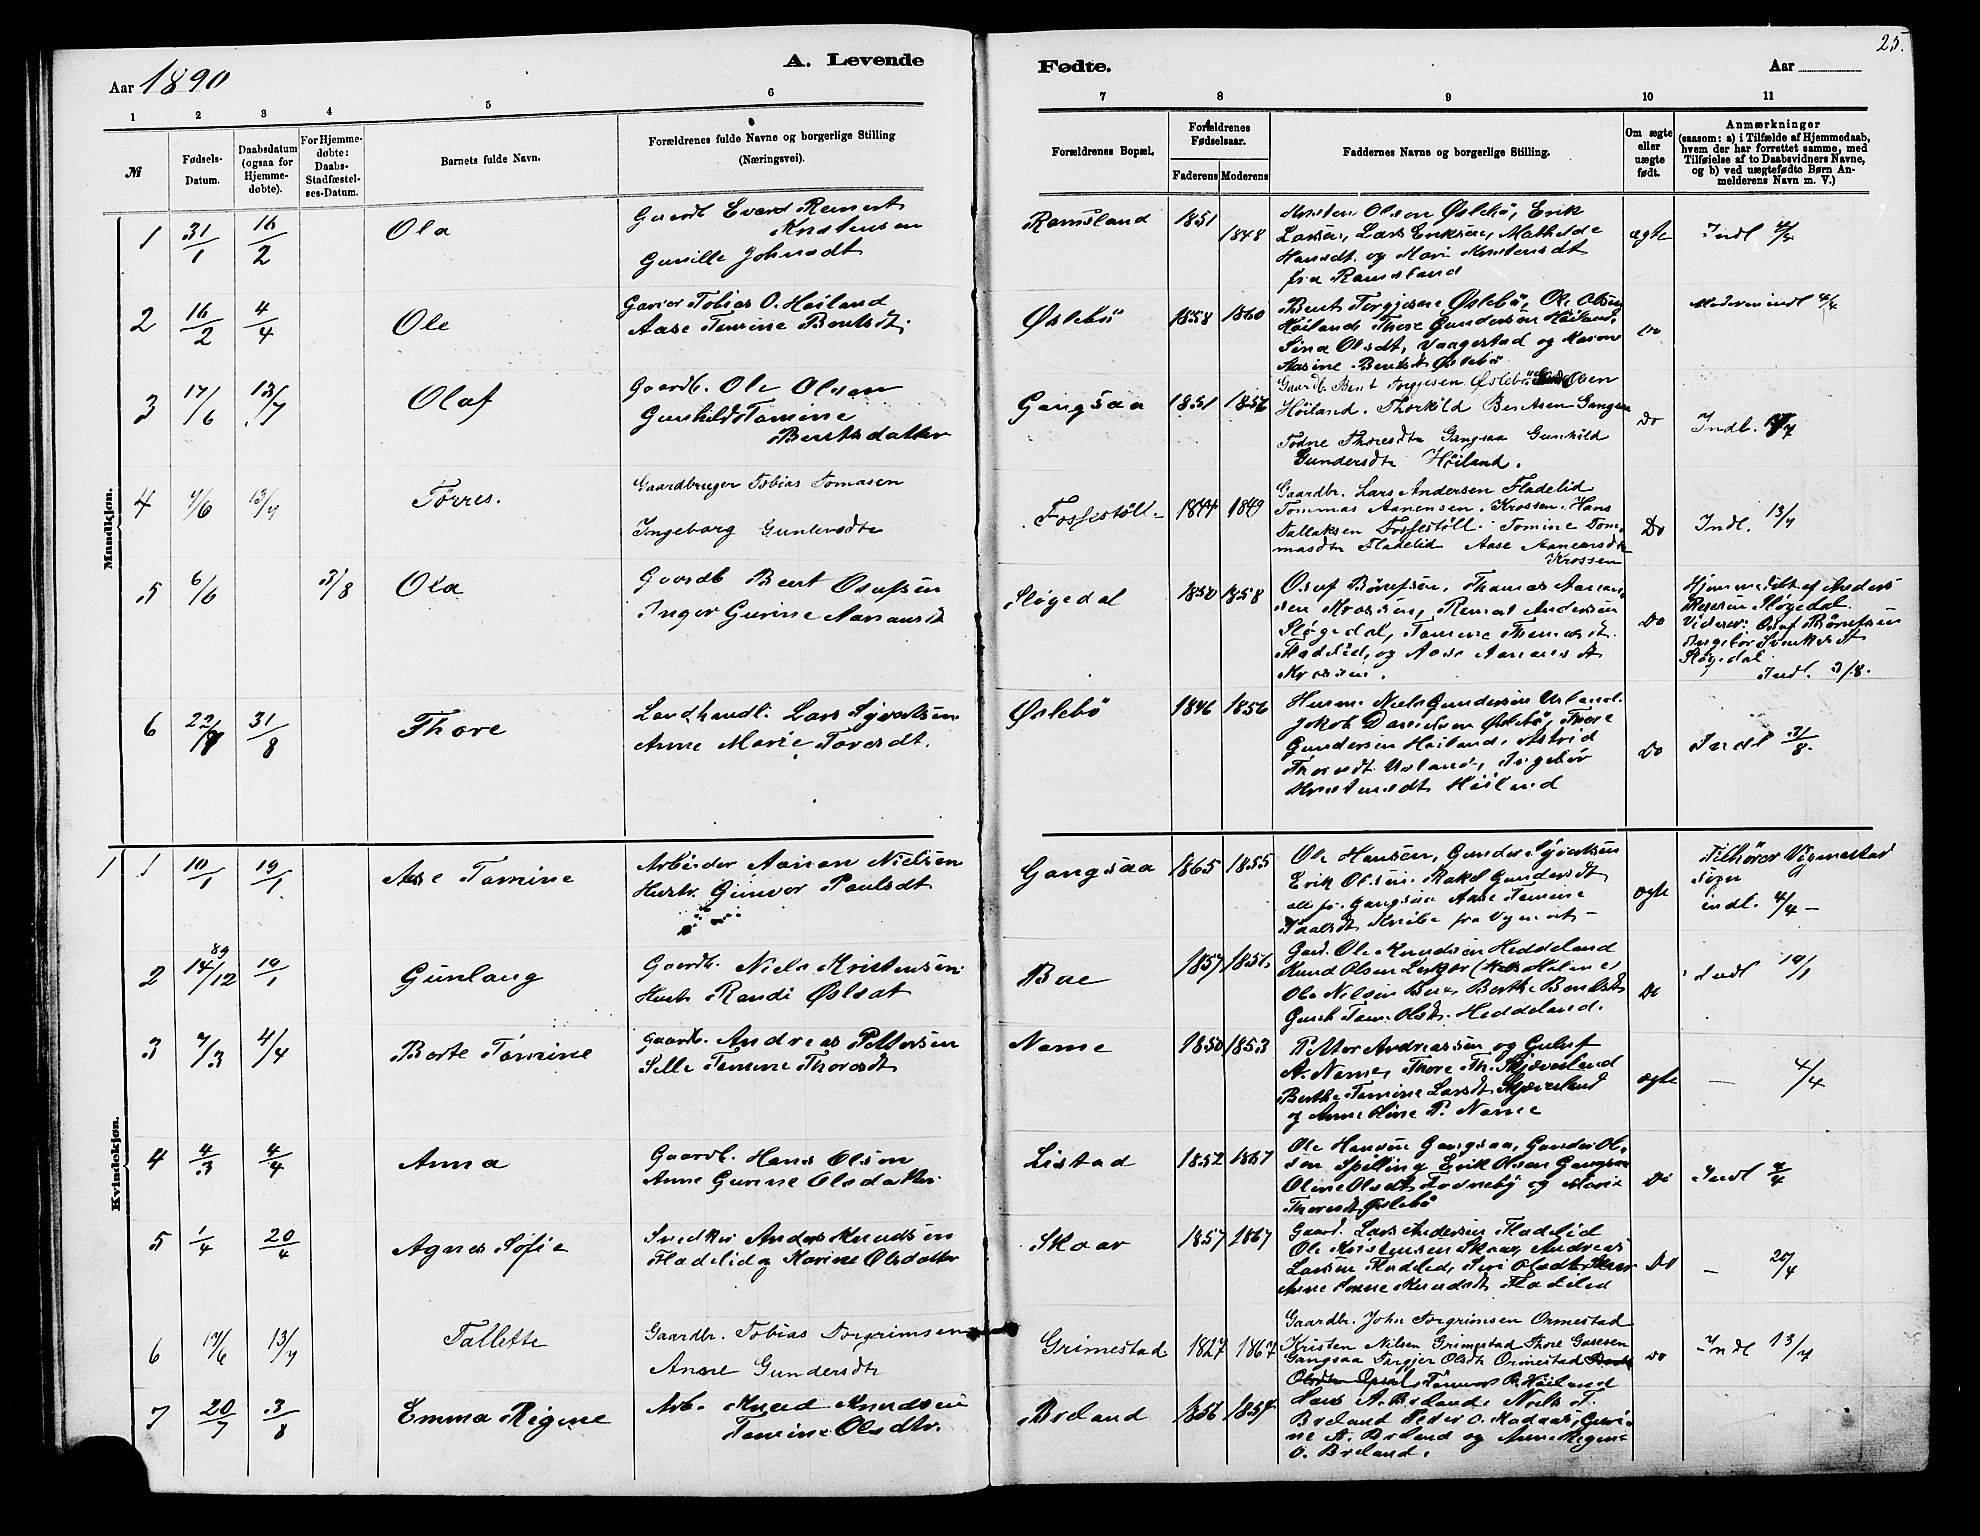 25.
A. Levende
Fødte.
Aar 1890
Aar
1 2 3 4 5 6
7 8 9 10 11
№
Fødsels-
Datum.
Daabsdatum
(ogsaa for
Hjemme-
døbte).
For Hjemme-
døbte:
Daabs-
Stadfæstel-
ses-Datum.
Barnets fulde Navn.
Forældrenes fulde Navne og borgerlige Stilling
(Næringsvei).
Forældrenes Bopæl.
Forældrenes
Fødselsaar.
Faderens Moderens
Faddernes Navne og borgerlige Stilling.
Om ægte
eller
uægte
født.
Anmærkninger
(saasom: a) i Tilfælde af Hjemmedaab,
hvem der har forrettet samme, med
Tilføielse af to Daabsvidners Navne,
og b) ved uægtefødte Børn An-
melderens Navn m. V.)
Mandkjøn.
1 31/1 16/2 Ola
Gaardb Evard Reinert
Kristensen
Gunille Johnsdt
Ramsland 1851 1848
Kristen Olsen Øslebö, Erik
Larsen, Lars Eriksen, Mathilde
Hansdt. og Mari Kristensdt
fra Ramsland
ægte Indl 4/4
2 16/2 4/4 Ole
Garver Tobias O. Höiland
Aase Tomine Bentsdt.
Øslebö 1858 1860
Bent Torgjesen Øslebö, Ole Olsen
Höiland, Thore Gundersen Höiland,
Sina Olsdt, Vaagestad og Maren
Aasine Bentsdt Øslebö.
Do Moderen indl 4/4
3 17/6 13/7 Olaf
Gaardb. Ole Olsen
Gunhild Tomine
Bentsdatter
Gangsaa 1851 1856
Gaardb. Bent Torgjesen Øslebö Olsen
Höiland. Thorkild Bentsen Gangsaa
Todne Thoresdtr Gangsaa Gunhild
Gundersdtr Höiland.
Do Indl. 13/7
4 7/6 13/7 Tørres.
Gaardbruger Tobias Tomasen
Ingeborg Gundersdtr
Fossestöll 1844 1849
Gaardbr. Lars Andersen Fladelid
Tommas Aanensen Krossen. Hans
Tallaksen Fossestöll. Tomine Tom-
masdtr Fladelid Aase Aanensdtr
Krossen
Do Indl. 13/7
5 6/6 3/8 Ola
Gaardb Bent Osufsen
Inger Gurine Aanensdt
Sløgedal 1850 1858
Osuf Börufsen, Thomas Aanen-
sen Krossen, Reinert Andersen
Sløgedal, Tomine Thomasdt.
Fladelid, og Aase Aanensdt
Krossen.
Do
Hjemmedöbt af Anders
Sløgedal.
Vidner: Osuf Börufsen
Sløgedal
Indl. 3/8.
6 31/8 Thore
Landhandl. Lars Syvertsen
Anne Marie Toresdt.
Øslebö 1846 1856
Husm. Niels Gundersen Usland.
Jakob Danielsen Øslebö, Thore
Gundersen Höiland, Astrid
Thoresdt Usland, Ingebör
Kristensdt Höiland
Do Indl 31/8.
Kvindekjøn.
1 1 10/1 19/1 Aase Tomine
Arbeider Aanen Nielsen
Hustr. Gunvor Paulsdt
Gangsaa 1865 1855
Ole Hansen, Gunder Syvertsen
Erik Olsen. Rakel Gundersdt
alle fr. Gangsaa Aase Tomine
fra Vigmost-
ægte
Tilhører Vigmostad
Sogn
indl. 4/4 -
2 89 14/12 19/1 Gunlaug
Gaardb. Niels Kristensen
Hustr Randi Øslsdt
Boe 1857 1856
Gbd. Ole Knudsen Heddeland
Knud Olsen
Ole Nilsen Boe, Berthe Bentsdt
Gunh. Tom. Olsdt. Heddeland.
Do Indl 19/1
3 7/3 4/4 Berte Tomine
Gaardb. Andreas Pettersen
Sille Tomine Thoresdt
Nome 1850 1853
Petter Andreassen og Guluf
A. Nome, Thore Th. Skjæveland
Berthe Tomine Larsdt Skjæveland
og Anne Oline P. Nome
ægte - 4/4
4 4/3 4/4 Anna
Gaardb. Hans Olsen
Anne Gurine Olsdatter
Listad 1852 1867
Ole Hansen Gangsaa, Gunder Ol-
sen Spelling Erik Olsen Gangsaa
Oline Olsdt Fodnebö og Marie
Thoresdt Øslebö
Do Indl 4/4
5 1/4 20/4 Agnes Sofie
Snedker Anders Knudsen
Fladelid og Karine Olsdatter
Skaar 1857 1867
Gaard. Lars Andersen Fladelid
Ole Kristensen Skaar, Andreas
Larsen Fladelid, Siri Olsdt Skaar
Anne Tomine Knudsdt Fladelid
Do - 20/4
6 17/6 13/7 Tallette
Gaardbr. Tobias Torgrimsen
Anne Gundersdtr
Grimestad 1827 1867
Gaardbr. John Torgrimsen Ormestad
Kristen Nilsen Grimestad Thore Gusesen
Gangsaa Torgjer Olsdtr Ormestad
Olsdtr Höiland
Do Indl 13/7
7 20/7 3/8 Emma Regine
Arb. Knud Knudsen
Tomine Olsdtr.
Breland 1856 1854
Hans A. Breland, Niels T.
Breland Peder O. Kodaas, Guri-
ne A. Breland og Anne Regine
O. Breland.